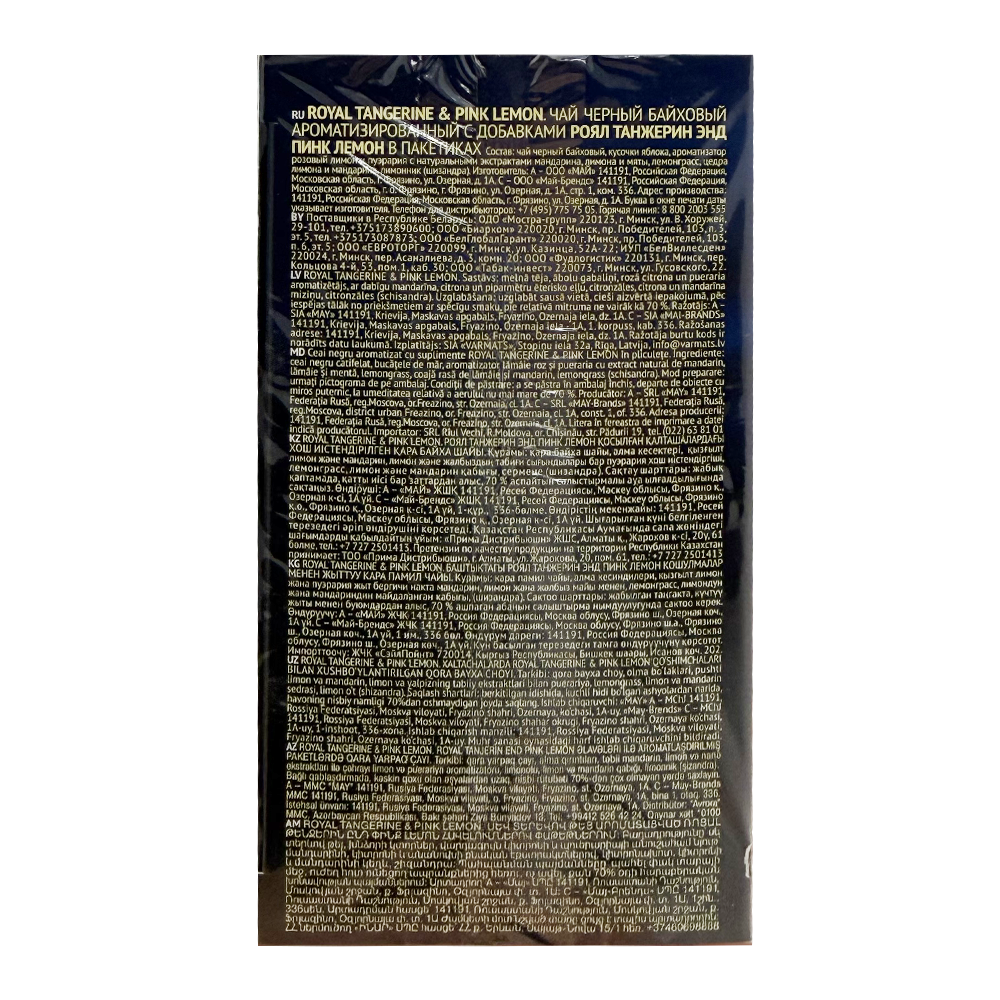 RU ROYAL TANGERINE & PINK LEMON. ЧАЙ ЧЕРНЫЙ БАЙХОВЫЙ
АРОМАТИЗИРОВАННЫЙ С ДОБАВКАМИ РОЯЛ ТАНЖЕРИН ЭНД
ПИНК ЛЕМОН В ПАКЕТИКАХ Состав: чай черный байховый, кусочки яблока, ароматизатор
розовый лимон и пуэрария с натуральными экстрактами мандарина, лимона и мяты, лемонграсс, цедра
лимона и мандарина, лимонник (шизандра). Изготовитель: А – ООО «МАЙ» 141191, Российская Федерация,
Московская область, г. Фрязино, ул. Озерная, д. 1А. С – ООО «Май-Брендс» 141191, Российская Федерация,
Московская область, г.о. Фрязино, г. Фрязино, ул. Озерная, д. 1А, стр. 1, ком. 336. Адрес производства:
141191, Российская Федерация, Московская область, г. Фрязино, ул. Озерная, д. 1А. Буква в окне печати даты
указывает изготовителя. Телефон для дистрибьюторов: +7 (495) 775 75 05. Горячая линия: 8 800 2003 555
BY Поставщики в Республике Беларусь: ОДО «Мостра-групп» 220123, г. Минск, ул. В. Хоружей,
29-101, тел. +375173890600; ООО «Биарком» 220020, г. Минск, пр. Победителей, 103, п. 3,
эт. 5, тел. +375173087873; ООО «БелГлобалГарант» 220020, г. Минск, пр. Победителей, 103,
п. 6, эт. 3; ООО «ЕВРОТОРГ» 220099, г. Минск, ул. Казинца, 52А-22; ИУП «БелВиллесден»
220024, г. Минск, пер. Асаналиева, д. 3, комн. 20; ООО «Фудлогистик» 220131, г. Минск, пер.
Кольцова 4-й, 53, пом. 1, каб. 30; ООО «Табак-инвест» 220073, г. Минск, ул. Гусовского, 22.
LV ROYAL TANGERINE & PINK LEMON. Sastāvs: melnā tēja, ābolu gabaliņi, rozā citrona un pueraria
aromatizētājs, ar dabīgu mandarīna, citrona un piparmētru ēterisko eļļu, citronzāles, citrona un mandarīna
miziņu, citronzāles (schisandra). Uzglabāšana: uzglabāt sausā vietā, cieši aizvērtā iepakojumā, pēc
iespējas tālāk no priekšmetiem ar spēcīgu smaku, pie relatīvā mitruma ne vairāk kā 70 %. Ražotājs: A –
SIA «MAY» 141191, Krievija, Maskavas apgabals, Fryazino, Ozernaja iela, dz. 1A. C – SIA «MAI-BRANDS»
141191, Krievija, Maskavas apgabals, Fryazino, Ozernaja iela, 1A, 1. korpuss, kab. 336. Ražošanas
adrese: 141191, Krievija, Maskavas apgabals, Fryazino, Ozernaja iela, dz. 1A. Ražotāja burtu kods ir
norādīts datu laukumā. Izplatītājs: SIA «VARMATS», Stopiņu iela 32a, Rīga, Latvija, info@varmats.lv
MD Ceai negru aromatizat cu suplimente ROYAL TANGERINE & PINK LEMON în pliculețe. Ingrediente:
ceai negru catifelat, bucățele de măr, aromatizator lămâie roz și pueraria cu extract natural de mandarin,
lămâie și mentă, lemongrass, coajă rasă de lămâie și mandarin, lemongrass (schisandra). Mod preparare:
urmați pictograma de pe ambalaj. Condiții de păstrare: a se păstra în ambalaj închis, departe de obiecte cu
miros puternic, la umeditatea relativă a aerului nu mai mare de 70 %. Producător: A – SRL «MAY» 141191,
Federația Rusă, reg.Moscova, or.Freazino, str. Ozernaia, cl. 1A. C – SRL «MAY-Brands» 141191, Federația Rusă,
reg.Moscova, district urban Freazino, or. Freazino, str. Ozernaia, cl. 1A, const. 1, of. 336. Adresa producerii:
141191, Federația Rusă, reg.Moscova, or. Freazino, str. Ozernaia, cl. 1A. Litera în fereastra de imprimare a datei
indică producătorul. Importator: SRL Rihi Vechi, R.Moldova, or. Chișinău, str. Pădurii 19, tel. (022) 63 81 01
KZ ROYAL TANGERINE & PINK LEMON. РОЯЛ ТАНЖЕРИН ЭНД ПИНК ЛЕМОН ҚОСЫЛҒАН ҚАЛТАШАЛАРДАҒЫ
ХОШ ИІСТЕНДІРІЛГЕН ҚАРА БАЙХА ШАЙЫ. Құрамы: қара байха шайы, алма кесектері, қызғылт
лимон және мандарин, лимон және жалбыздың табиғи сығындылары бар пуэрария хош иістендіргіші,
лемонграсс, лимон және мандарин қабығы, сермеңе (шизандра). Сақтау шарттары: жабық
қаптамада, қатты иісі бар заттардан алыс, 70 % аспайтын салыстырмалы ауа ылғалдылығында
сақтаңыз. Өндіруші: А – «МАЙ» ЖШҚ 141191, Ресей Федерациясы, Мәскеу облысы, Фрязино қ.,
Озерная к-сі, 1А үй. С – «Май-Брендс» ЖШҚ 141191, Ресей Федерациясы, Мәскеу облысы, Фрязино
қ.о., Фрязино қ., Озерная к-сі, 1А үй, 1-құр., 336-бөлме. Өндірістің мекенжайы: 141191, Ресей
Федерациясы, Мәскеу облысы, Фрязино қ., Озерная к-сі, 1А үй. Шығарылған күні белгіленген
терезедегі әріп өндірушіні көрсетеді. Қазақстан Республикасы Аумағында сапа жөніндегі
шағымдарды қабылдайтын ұйым: «Прима Дистрибьюшн» ЖШС, Алматы қ., Жарохов к-сі, 20у, 61
бөлме, тел.: +7 727 2501413. Претензии по качеству продукции на территории Республики Казахстан
принимает: ТОО «Прима Дистрибьюшн», г. Алматы, ул. Жарокова, 20, пом. 61, тел.: +7 727 2501413
KG ROYAL TANGERINE & PINK LEMON. БАШТЫКТАГЫ РОЯЛ ТАНЖЕРИН ЭНД ПИНК ЛЕМОН КОШУЛМАЛАР
МЕНЕН ЖЫТТУУ КАРА ПАМИЛ ЧАЙЫ. Курамы: кара памил чайы, алма кесиндилери, кызгылт лимон
жана пуэрария жыт бергичи накта мандарин, лимон жана жалбыз майы менен, лемонграсс, лимондун
жана мандариндин майдаланган кабыгы, (шизандра). Сактоо шарттары: жабылган таңгакта, күчтүү
жыты менен буюмдардан алыс, 70 % ашпаган абанын салыштырма нымдуулугунда сактоо керек.
Өндүрүүчү: А – «МАЙ» ЖЧК 141191, Россия Федерациясы, Москва облусу, Фрязино ш., Озерная көч.,
1А үй. С – «Май-Брендс» ЖЧК 141191, Россия Федерациясы, Москва облусу, Фрязино ш.а., Фрязино
ш., Озерная көч., 1А үй, 1 им., 336 бөл. Өндүрүм дареги: 141191, Россия Федерациясы, Москва
облусу, Фрязино ш., Озерная көч., 1А үй. Күн басылган терезедеги тамга өндүрүүчүнү көрсөтөт.
Импорттоочу: ЖЧК «СэйлПойнт» 720014, Кыргыз Республикасы, Бишкек шаары, Исанов көч. 202.
UZ ROYAL TANGERINE & PINK LEMON. XALTACHALARDA ROYAL TANGERINE & PINK LEMON QO'SHIMCHALARI
BILAN XUSHBO'YLANTIRILGAN QORA BAYXA CHOY. Tarkibi: qora bayxa choy, olma bo'laklari, pushti
limon va mandarin, limon va yalpizning tabiiy ekstraktlari bilan puerariya, lemongrass, limon va mandarin
sedrasi, limon o't (shizandra). Saqlash shartlari: berkitilgan idishda, kuchli hidi bo'lgan ashyolardan narida,
havoning nisbiy namligi 70%dan oshmaydigan joyda saqlang. Ishlab chiqaruvchi: «MAY» A – MChJ 141191,
Rossiya Federatsiyasi, Moskva viloyati, Fryazino shahri, Ozernaya ko'chasi, 1A-uy. «May-Brends» C – MChJ
141191, Rossiya Federatsiyasi, Moskva viloyati, Fryazino shahar okrugi, Fryazino shahri, Ozernaya ko'chasi
1A-uy, 1-inshoot, 336-xona. Ishlab chiqarish manzili: 141191, Rossiya Federatsiyasi, Moskva viloyati,
Fryazino shahri, Ozernaya ko'chasi, 1A-uy. Muhr sanasi oynasidagi harf ishlab chiqaruvchini bildiradi.
AZ ROYAL TANGERINE & PINK LEMON. ROYAL TANJERIN END PINK LEMON ƏLAVƏLƏRİ İLƏ AROMATLAŞDIRILMIŞ
PAKETLƏRDƏ QARA YARPAQ ÇAYI. Tərkibi: qara yarpaq çay, alma qırıntıları, təbii mandarin, limon və nanə
ekstraktları ilə çəhrayı limon və pueraria aromatizatoru, lemonqras, limon və mandarin qabığı, limonnik (şizandra).
Bağlı qablaşdırmada, kəskin qoxu olan əşyalardan uzaq, nisbi rütubəti 70%-dən çox olmayan yerdə saxlayın.
A – MMC "MAY" 141191, Rusiya Federasiyası, Moskva vilayəti, Fryazino, st. Ozernaya, 1A. C – May-Brands
MMC 141191, Rusiya Federasiyası, Moskva vilayəti, o. Fryazino, Fryazino, st. Ozernaya, 1A, bina 1, otaq. 336.
İstehsal ünvanı: 141191, Rusiya Federasiyası, Moskva vilayəti, Fryazino, st. Ozernaya, 1A. Distributor: "Avrora"
MMC, Azərbaycan Respublikası, Bakı şəhəri
AM ROYAL TANGERINE & PINK LEMON.